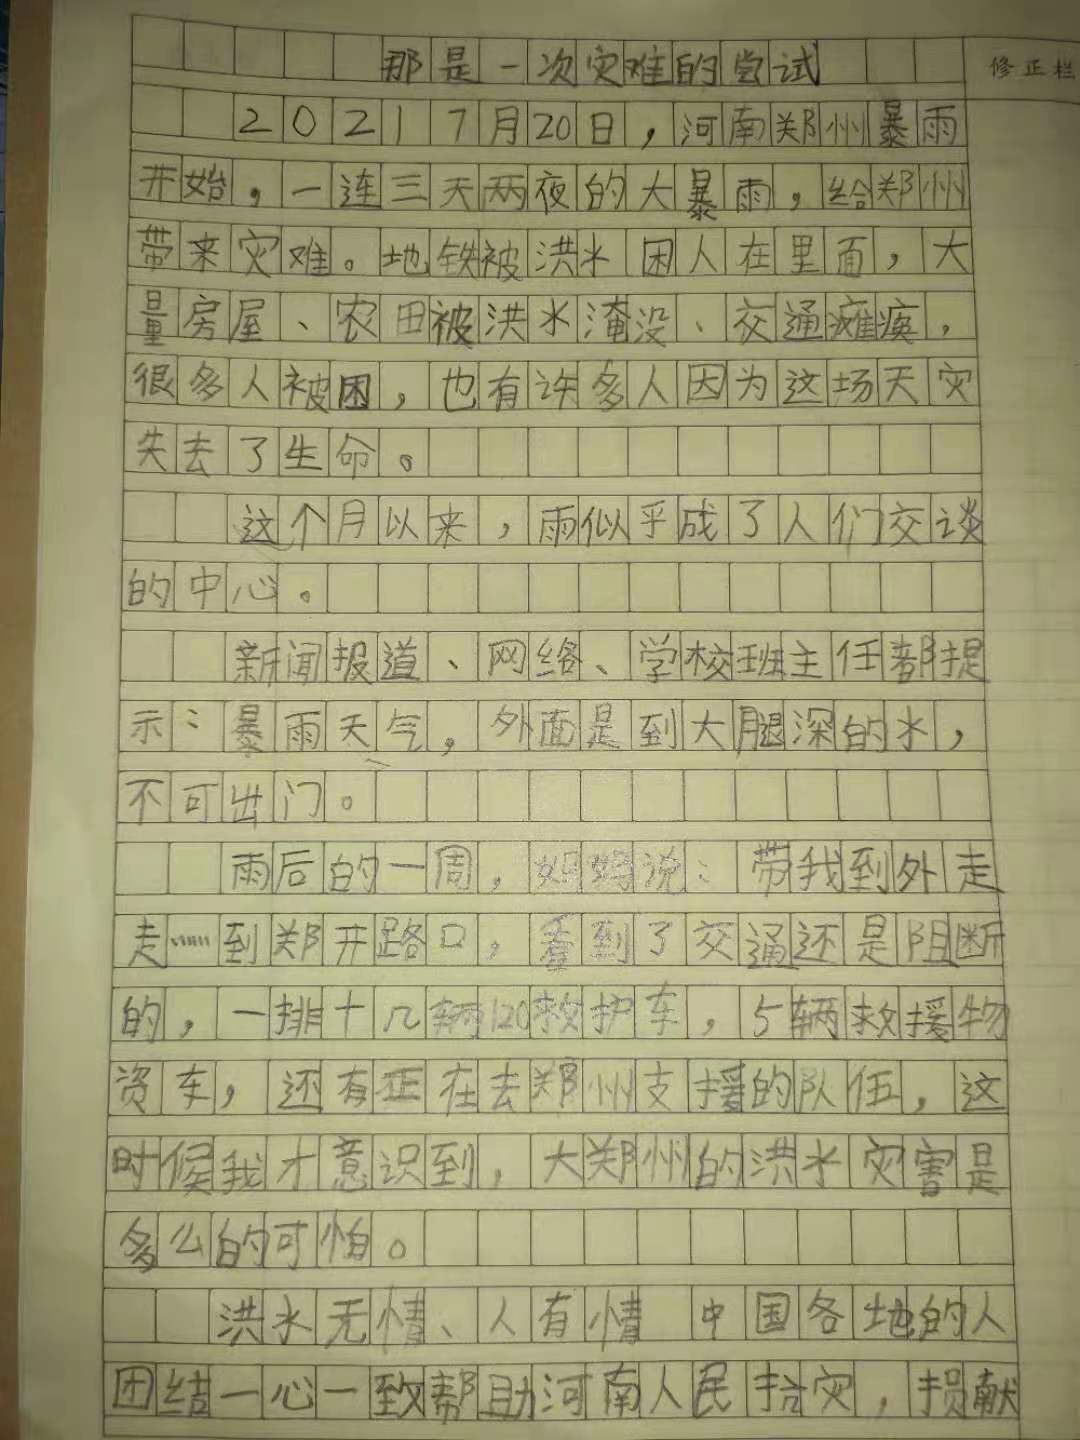 那是一次灾难的尝试
修正栏
2021 7月20日，河南郑州暴雨
开始，一连三天两夜的大暴雨，给郑州
带来灾难。地铁被洪水困人在里面，大
量房屋、农田被洪水淹没、交通瘫痪，
很多人被困，也有许多人因为这场天灾
失去了生命。
这个月以来，雨似乎成了人们交谈
的中心。
新闻报道、网络、学校班主任都提
示：暴雨天气，外面是到大腿深的水，
不可出门。
雨后的一周，妈妈说：带我到外走
走……到郑开路口，看到了交通还是阻断
的，一排十几辆120救护车，5辆救援物
资车，还有正在去郑州支援的队伍，这
时候我才意识到，大郑州的洪水灾害是
多么的可怕。
洪水无情、人有情 中国各地的人
团结一心一致帮助河南人民抢灾，损献